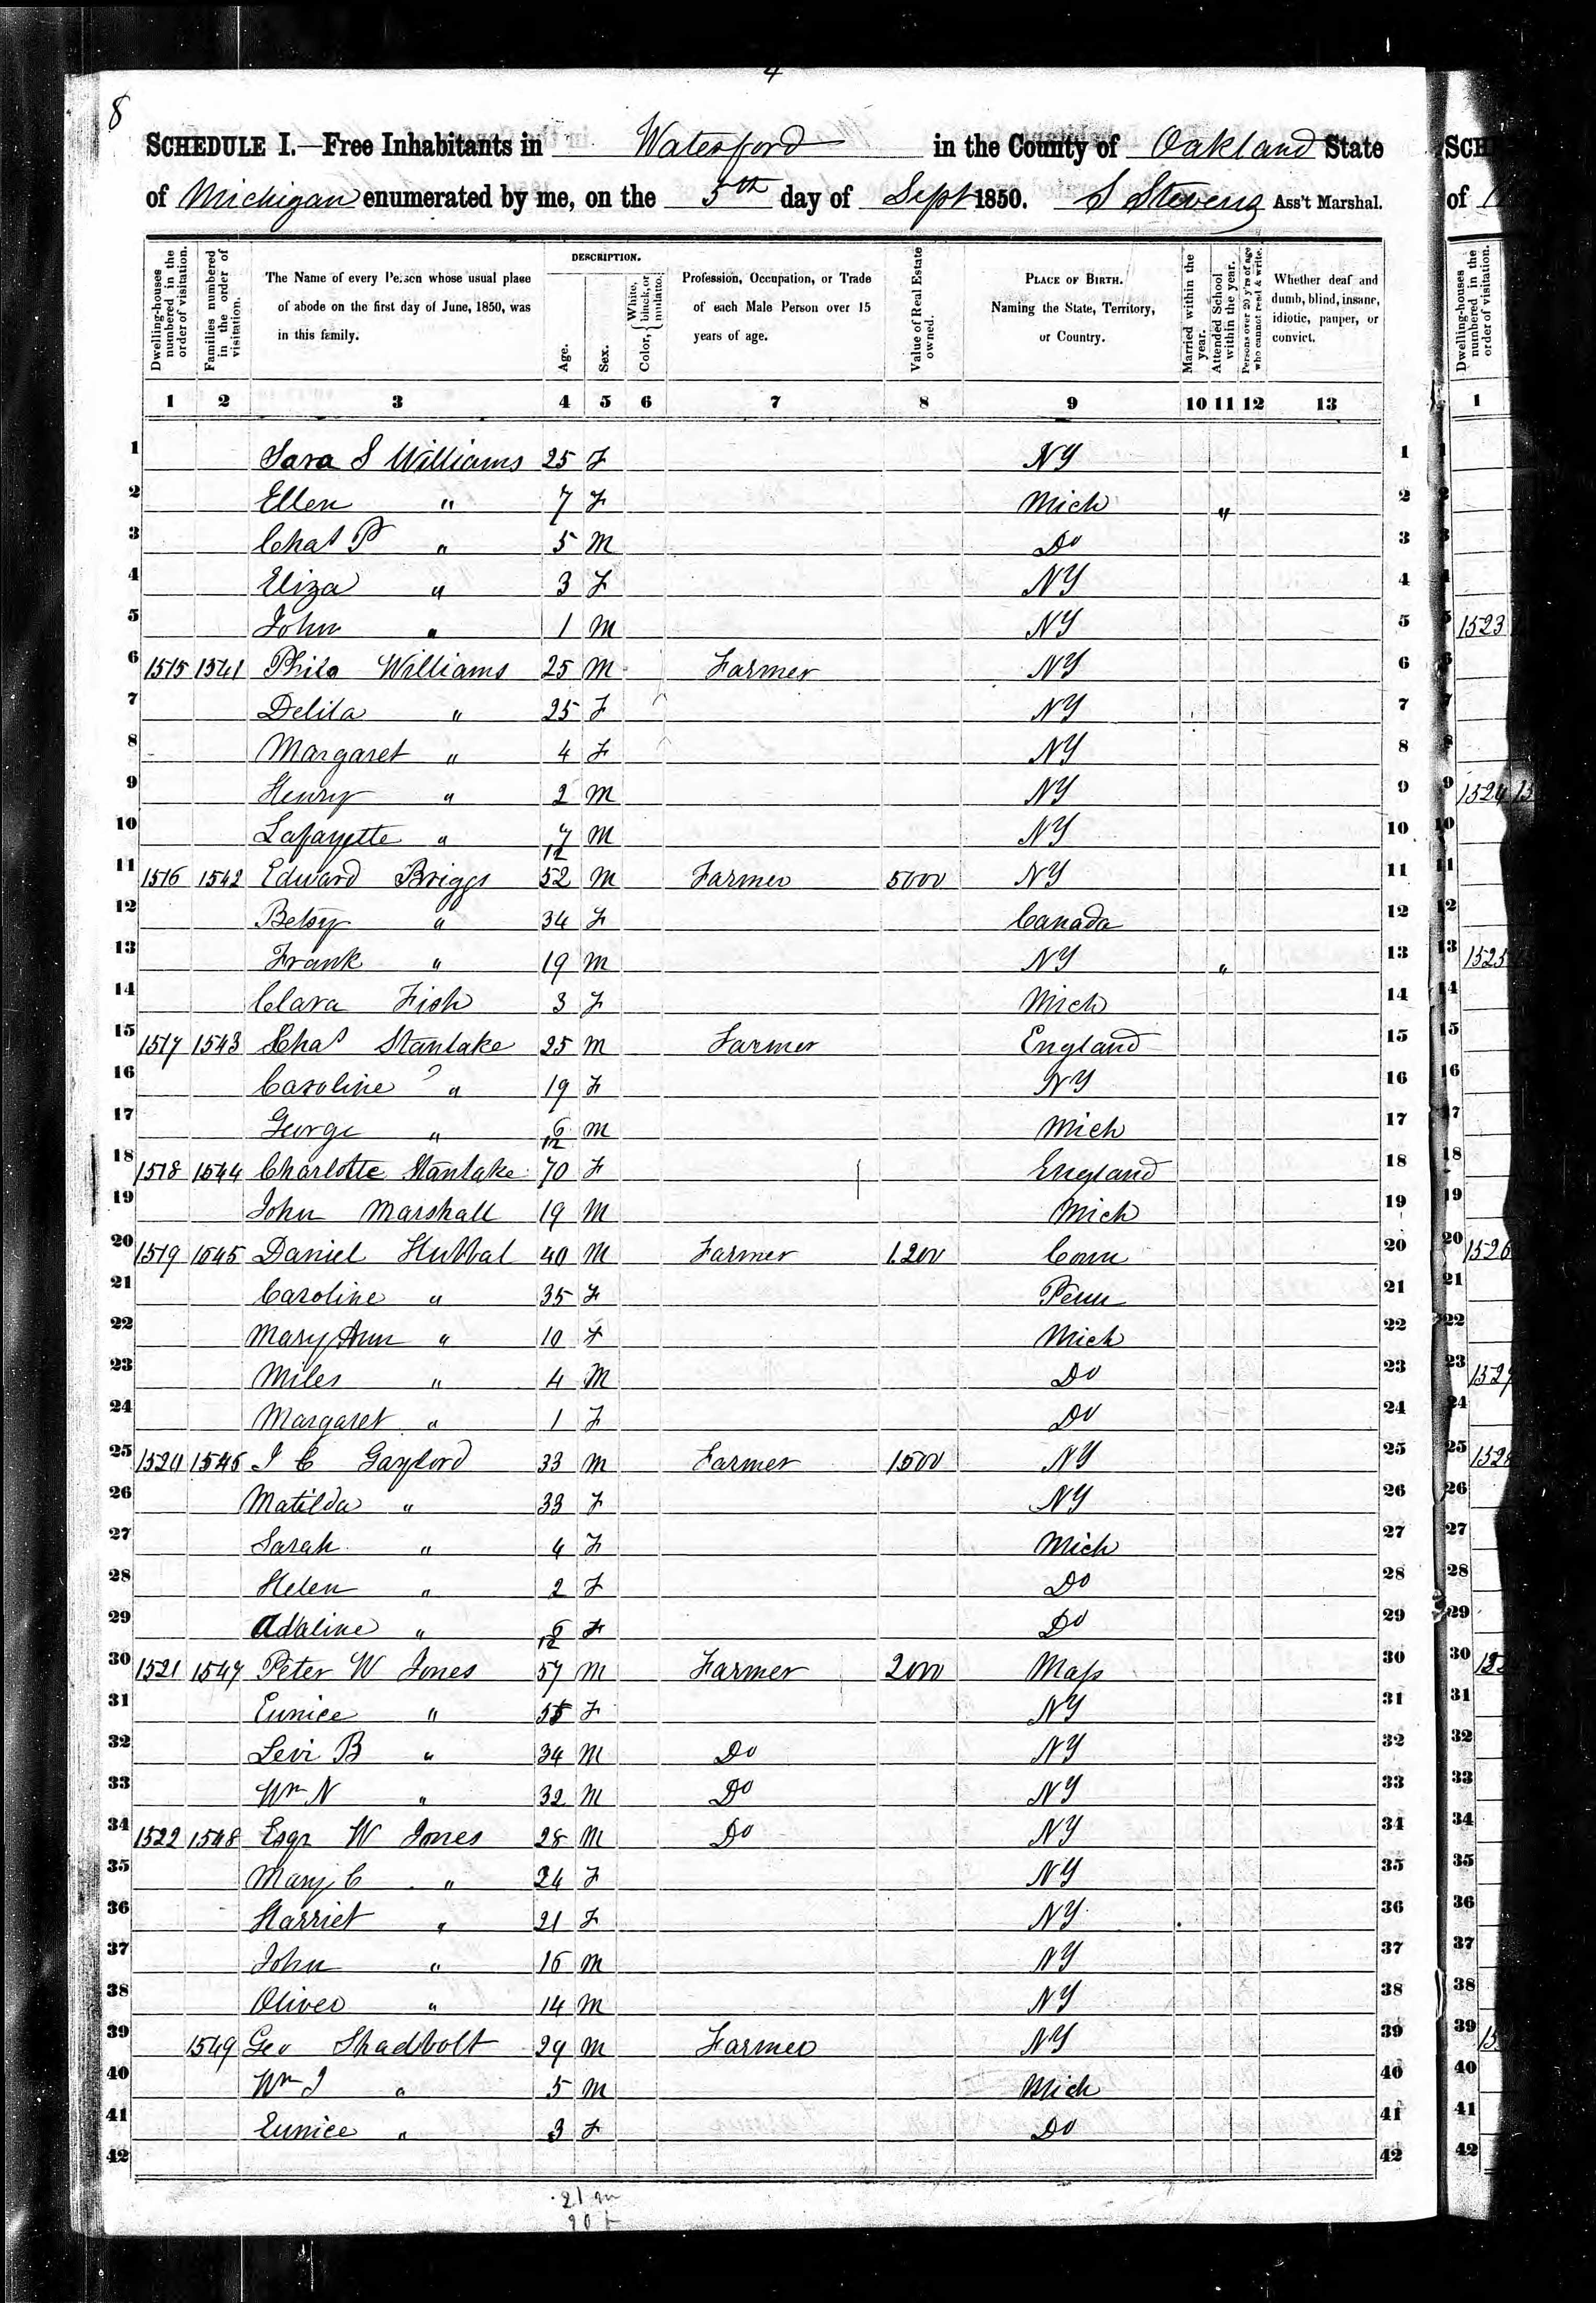 4
8
SCHEDULE I.—Free Inhabitants in Waterford in the County of Oakland State
of Michigan enumerated by me, on the 5th day of Sept 1850. S Stevens Ass't Marshal.
Dwelling-houses numbered in the order of visitation.
Families numbered in the order of visitation.
The Name of every Person whose usual place of abode on the first day of June, 1850, was in this family.
DESCRIPTION.
Age.
Sex.
Color, { White, black, or mulatto.
Profession, Occupation, or Trade of each Male Person over 15 years of age.
Value of Real Estate owned.
PLACE OF BIRTH. Naming the State, Territory, or Country.
Married within the year.
Attended School within the year.
Persons over 20 y'rs of age who cannot read & write.
Whether deaf and dumb, blind, insane, idiotic, pauper, or convict.
1 2 3 4 5 6 7 8 9 10 11 12 13
1 Sara S Williams 25 F NY 1
2 Ellen " 7 F Mich " 2
3 Chas P " 5 M Do 3
4 Eliza " 3 F NY 4
5 John " 1 M NY 5
6 1515 1541 Philo Williams 25 M Farmer NY 6
7 Delila " 25 F NY 7
8 Margaret " 4 F NY 8
9 Henry " 2 M NY 9
10 Lafayette " 7/12 M NY 10
11 1516 1542 Edward Briggs 52 M Farmer 5000 NY 11
12 Betsy " 34 F Canada 12
13 Frank " 19 M NY " 13
14 Clara Fish 3 F Mich 14
15 1517 1543 Chas Stanlake 25 M Farmer England 15
16 Caroline " 19 F NY 16
17 George " 6/12 M Mich 17
18 1518 1544 Charlotte Stanlake 70 F England 18
19 John Marshall 19 M Mich 19
20 1519 1545 Daniel Hubbal 40 M Farmer 1200 Conn 20
21 Caroline " 35 F Penn 21
22 Mary Ann " 10 F Mich 22
23 Miles " 4 M Do 23
24 Margaret " 1 F Do 24
25 1520 1546 J C Gaylord 33 M Farmer 1500 NY 25
26 Matilda " 33 F NY 26
27 Sarah " 4 F Mich 27
28 Helen " 2 F Do 28
29 Adaline " 6/12 F Do 29
30 1521 1547 Peter W Jones 57 M Farmer 2000 Mass 30
31 Eunice " 55 F NY 31
32 Levi B " 34 M Do NY 32
33 Wm N " 32 M Do NY 33
34 1522 1548 Esqr W Jones 28 M Do NY 34
35 Mary C " 24 F NY 35
36 Harriet " 21 F NY 36
37 John " 16 M NY 37
38 Oliver " 14 M NY 38
39 1549 Geo Shadbolt 29 M Farmer NY 39
40 Wm J " 5 M Mich 40
41 Eunice " 3 F Do 41
42 42
21 m
20 f
SCH
of
Dwelling-houses numbered in the order of visitation.
1
1
2
3
4
5 1523
6
7
8
9 1524
10
11
12
13 1525
14
15
16
17
18
19
20 1526
21
22
23 1527
24
25 1528
26
27
28
29
30
31
32
33
34
35
36
37
38
39
40
41
42